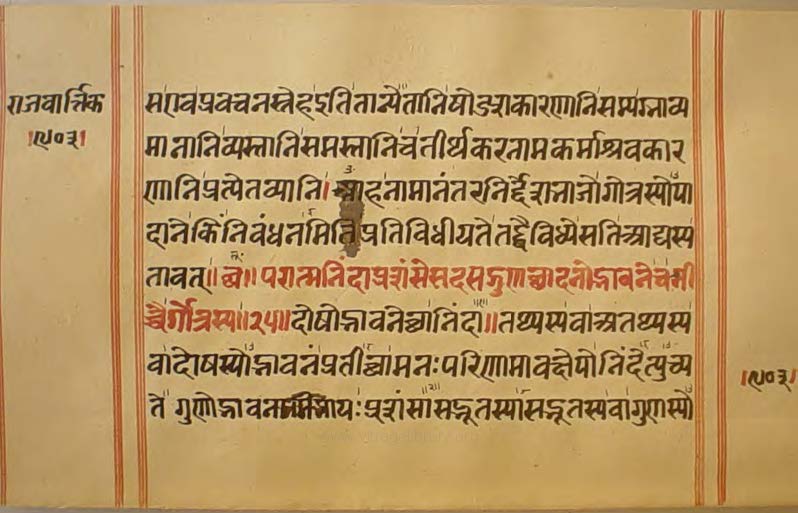 राजवार्त्तिक
।५०३।
मरावप्रवचनस्नेहइतितान्येतानिषोडशकारणानिसम्यग्भाव्य
मानानिव्यस्तानिसमस्तानिचतीर्थकरनामकर्माश्रवकार
णानिप्रत्येतव्यानि।आहनामानंतरनिर्द्देशभाजोगोत्रस्योपा
दानेकिंनिबंधनमितिप्रतिविधीयतेतद्द्वैविध्येसतिआद्यस्य
तावत्॥ परात्मनिंदाप्रशंसेसदसद्गुणच्छादनोद्भावनेचनी
चैर्गोत्रस्य॥२५॥दोषोद्भावनेच्छानिंदा॥तथ्यस्यवाअतथ्यस्य
वादोषस्योद्भावनंप्रतीच्छामनःपरिणामावक्षेपोनिंदेत्युच्य
ते गुणोद्भावनाभिप्रायःप्रशंसासद्भूतस्यासद्भूतस्यवागुणस्यो
।५०३।